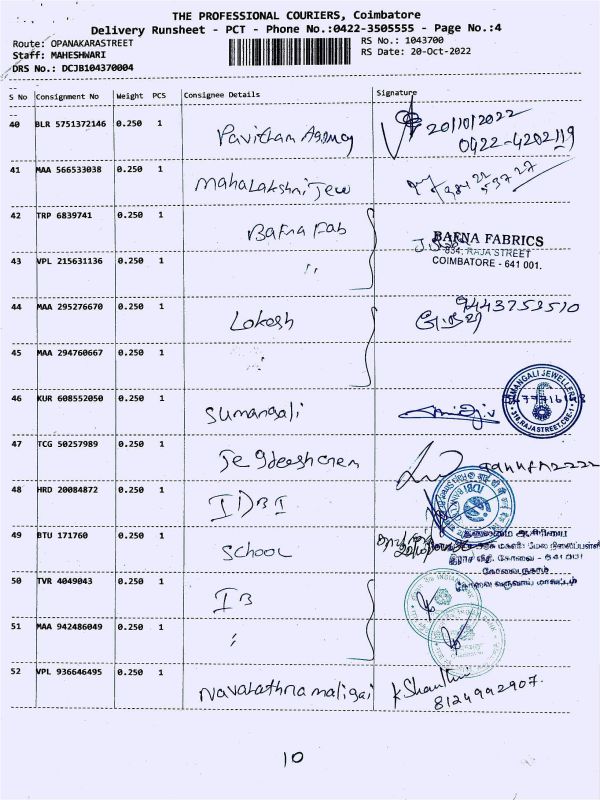 THE PROFESSIONAL COURIERS, Coimbatore
Delivery Runsheet - PCT - Phone No.:0422-3505555 - Page No.:4
Route: OPANAKARASTREET RS No.: 1043700
Staff: MAHESHWARI RS Date: 20-Oct-2022
DRS No.: DCJB104370004
S No Consignment No Weight PCS Consignee Details Signature
40 BLR 5751372146 0.250 1 Pavitham Agency 20/10/2022
0422-4202119
41 MAA 566533038 0.250 1 Mahalakshmi Jew
42 TRP 6839741 0.250 1 Bafna Fab BAFNA FABRICS
854, RAJA STREET
43 VPL 215631136 0.250 1 " COIMBATORE - 641 001.
44 MAA 295276670 0.250 1 Lokesh 9443753510
45 MAA 294760667 0.250 1 "
46 KUR 608552050 0.250 1 Sumangali SUMANGALI JEWELLERS
318, RAJA STREET, CBE-1
47 TCG 50257989 0.250 1
48 HRD 20084872 0.250 1 IDBI IDBI BANK
49 BTU 171760 0.250 1 School
50 TVR 4049043 0.250 1 IB INDIAN BANK
51 MAA 942486049 0.250 1 "
52 VPL 936646495 0.250 1 Navarathna maligai K Shanthi
8124992907.
10